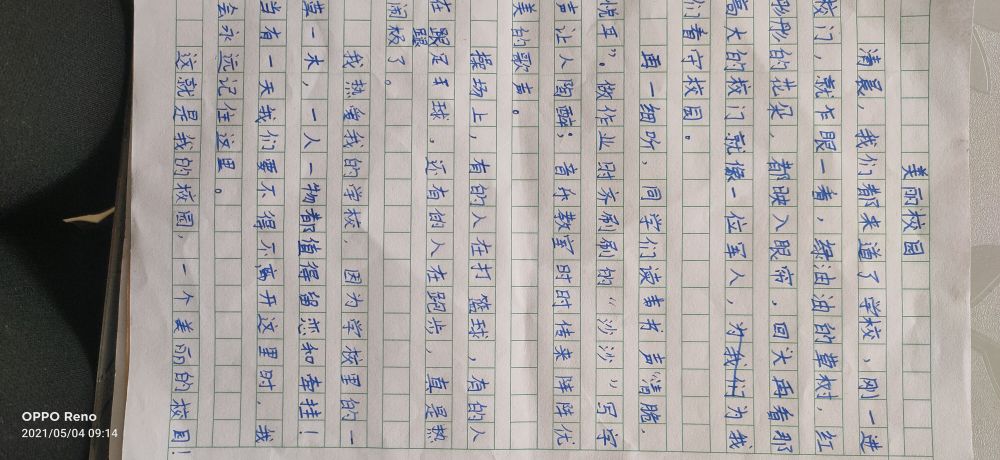 美丽校园
清晨，我们都来道了学校，刚一进
校门，就乍眼一看，绿油油的草树，红
彤彤的花朵，都映入眼帘，回头再看那
高大的校门就像一位军人，为我们为我
们看守校园。
再一细听，同学们读书声清脆，
悦耳”。做作业时齐刷刷的“沙沙”写字
声让人陶醉；音乐教室时时传来阵阵优
美的歌声。
操场上，有的人在打篮球，有的人
在踢足球，还有的人在跑步，真是热
闹极了。
我热爱我的学校，因为学校里的一
草一木，一人一物都值得留恋和牵挂！
当有一天我们要不得不离开这里时，我
会永远记住这里。
这就是我的校园，一个美丽的校园！
OPPO Reno
2021/05/04 09:14